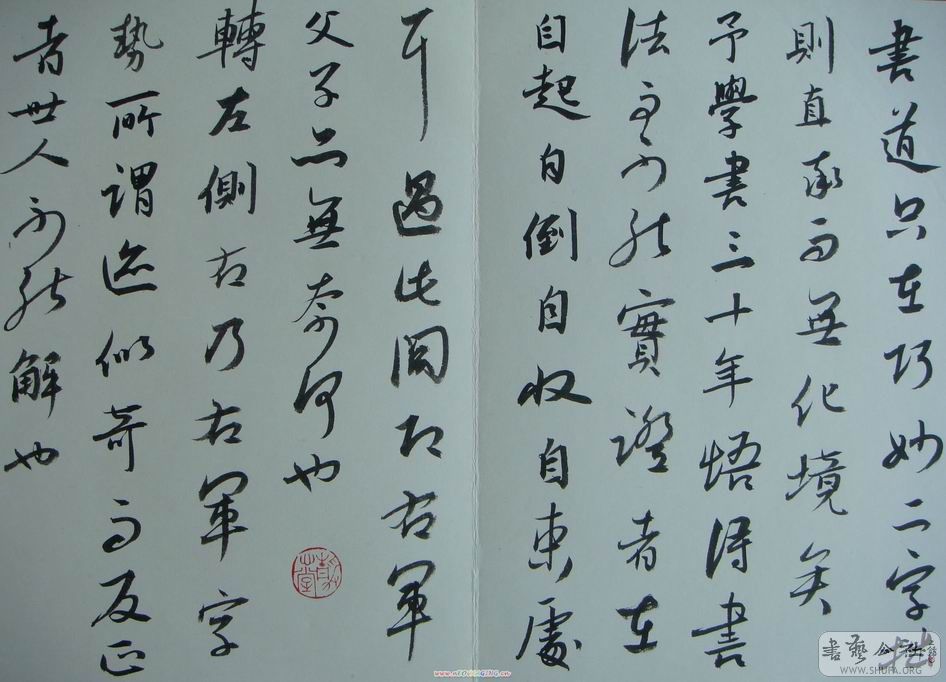 書道只在巧妙二字拙
則直率而無化境矣
予學書三十年悟得書
法而不能實證者在
自起自倒自收自束處
耳過此關即右軍
父子亦無奈何也
轉左側右乃右軍字
勢所謂迹似奇而反正
者世人不能解也
書藝公社
WWW.SHUFA.ORG